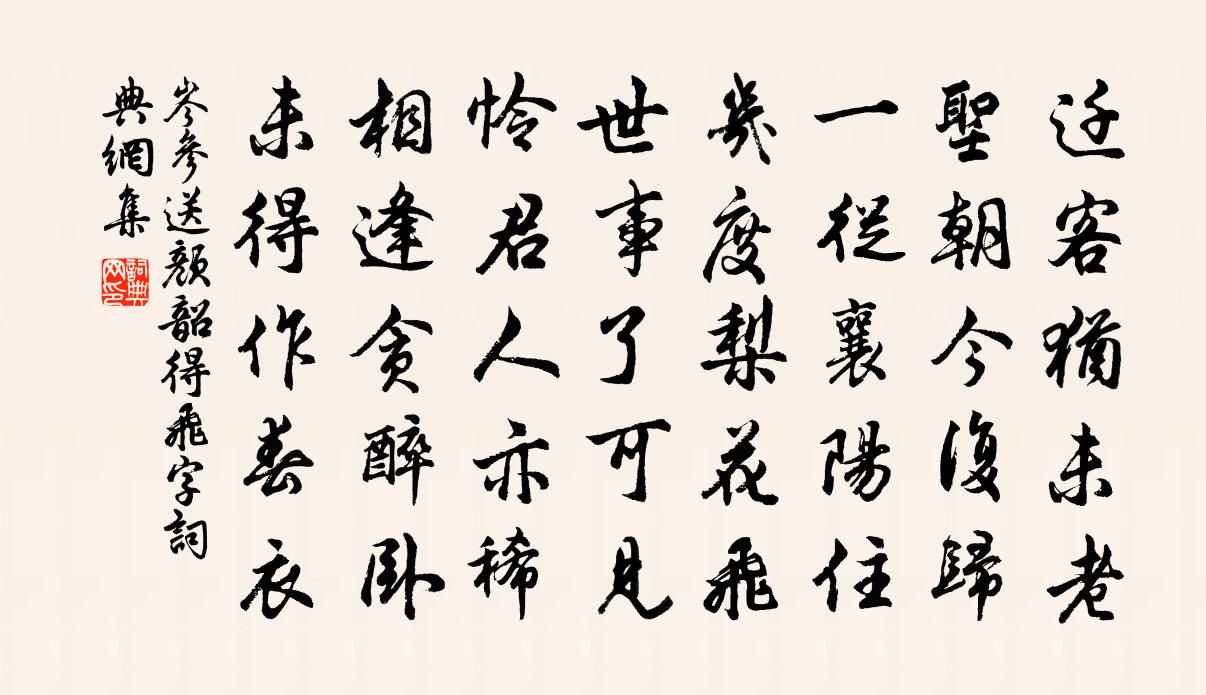 迁客猶未老
聖朝今復歸
一從襄陽住
幾度梨花飛
世事了可見
怜君人亦稀
相逢貪醉卧
未得作春衣
岑參送顏韶得飛字詞
典網集
詞典
网印